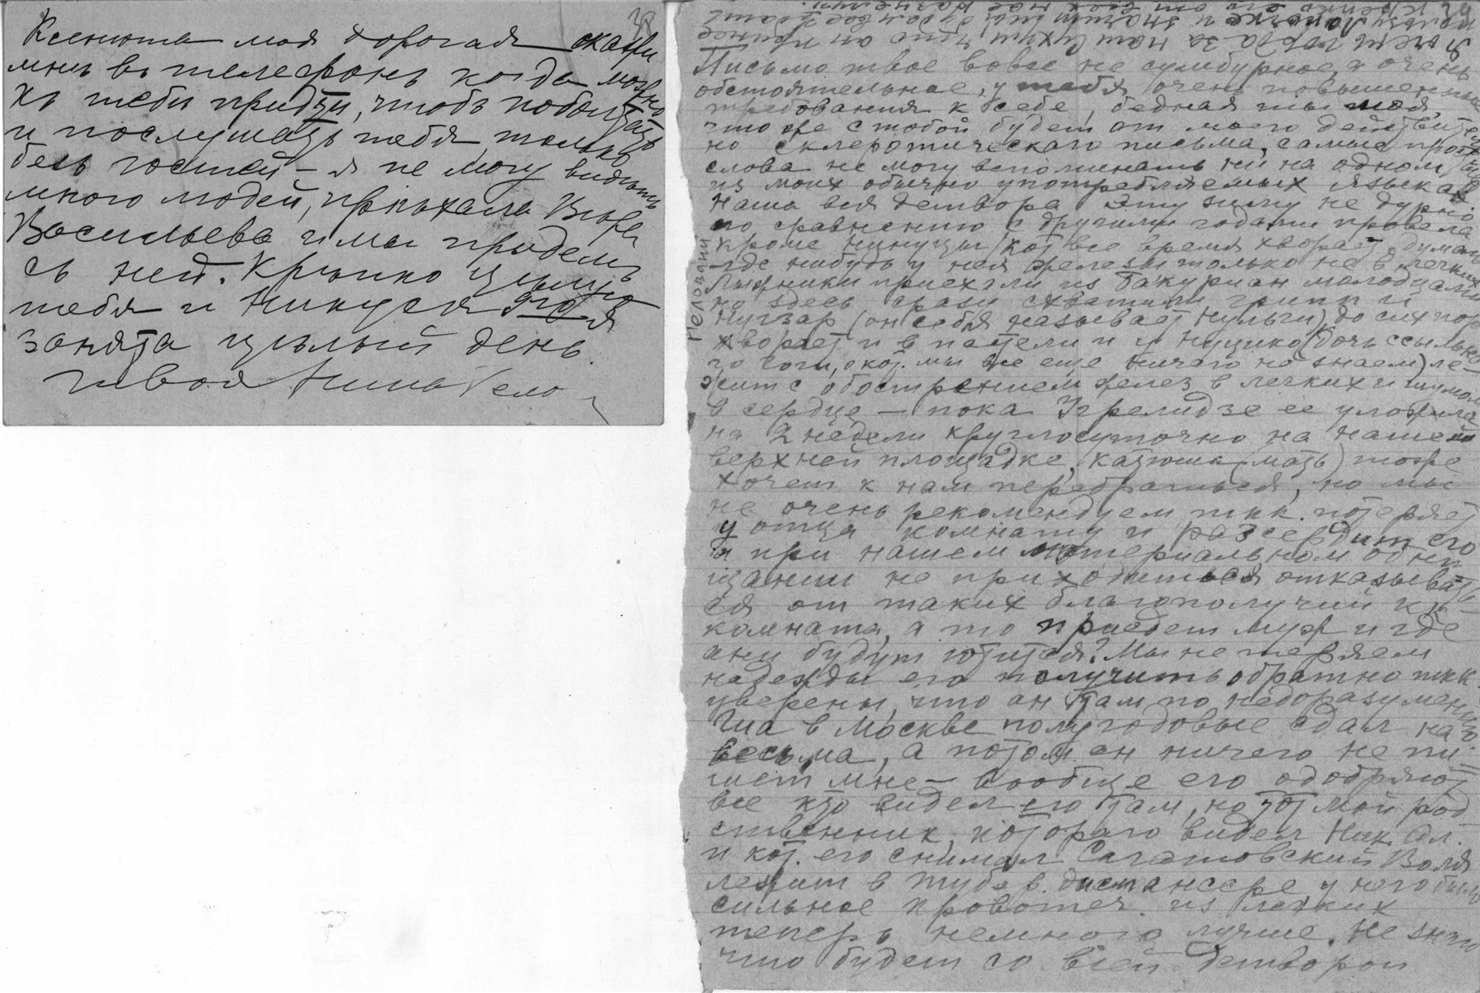 38
Ксенюша моя дорогая скажи
мнѣ въ телефонъ когда можно
къ тебѣ придти, чтобъ поболтать
и послушать тебя только
безъ гостей – я не могу видѣть
много людей, пріѣхала
Васильева и мы придемъ
съ ней. Крѣпко цѣлую
тебя и Никуся
занята цѣлый день.
твоя Нина Гело
Письмо твое вовсе не сумбурное, а очень
обстоятельное, у тебя очень повышенны
требования к себе, бедная ты моя,
что же с тобой будет от моего действит
но склеротическаго письма, самые прост
слова не могу вспоминать ни на одном
из моих обычно употребляемых языках
Наша вся детвора эту зиму не дурно
по сравнению с другими годами провела
кроме Нинуцы (кот все время хворает, думаем
где нибудь у нея железы только не в легких
Лыжники приехали из Бакуриан молодцами
но здесь сразу схватили грипп и
Нугзар (он себя называет Нульги) до сих пор
хворает и в постели и и Нуцико (дочь ссыльна
го Гоги, о кот. мы все еще ничего не знаем) ле-
жит с обострением желез в легких и шумом
в сердце – пока Згрелидзе ее уложила
на 2 недели круглосуточно на нашей
верхней площадке, Катюша (мать) тоже
хочет к нам перебраться, но мы
не очень рекомендуем т.к. потеряет
у отца комнату и разсердит его
а при нашем материальном обни
щании не приходиться отказыват
ся от таких благополучий как
комната, а то приедет муж и где
ани будут ютится? Мы не теряем
надежды его получить обратно т.к.
уверены, что он там по недоразумению
Гиа в Москве полугодовые сдал на
весьма, а потом он ничего не пи
шет мне – вообще его одобряют
все кто видел его там, но тот мой род
ственник, котораго видел Ник. Ал.
и кот. его снимал Сагатовский Воля
лежит в туб. диспансере у него был
сильное кровотеч. из легких
теперь немного лучше. Не знаю
что будет со всей детворой